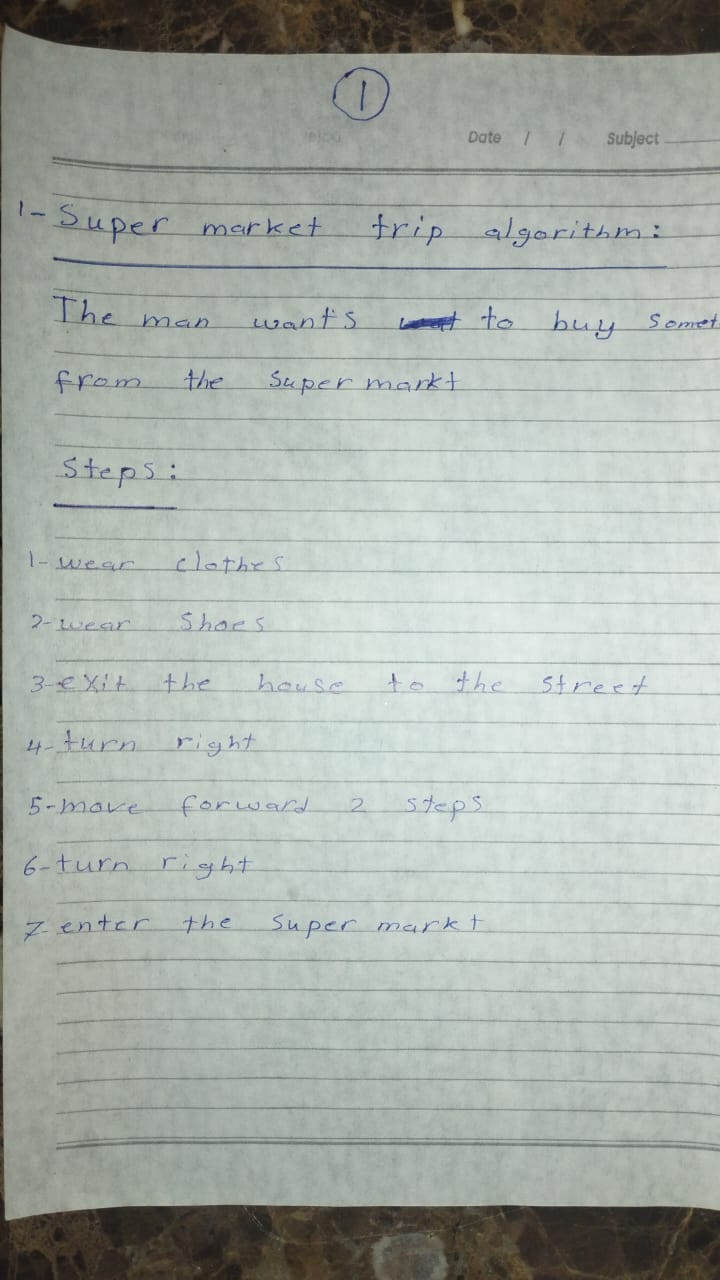 1
Date / / Subject
1- Super market trip algorithm:
The man wants to buy somet
from the Super markt
Steps:
1- wear clothes
2- wear Shoes
3- exit the house to the street
4- turn right
5- move forward 2 steps
6- turn right
7 enter the Super markt